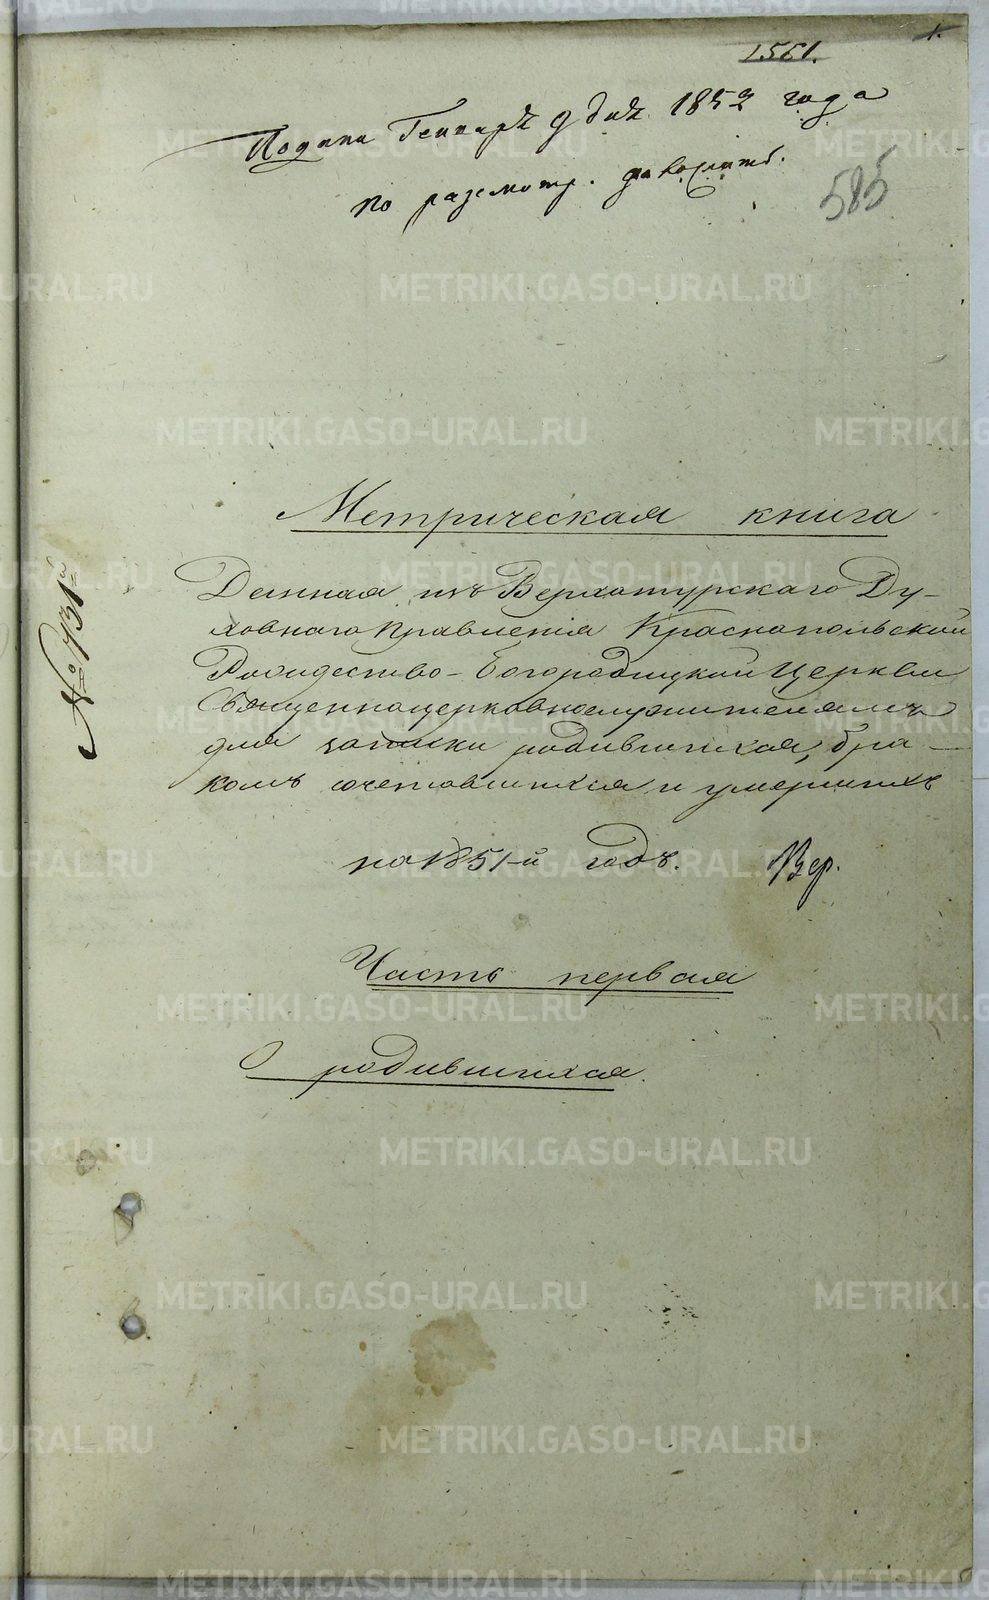 1.
1561.
Подана Генваря 9 дня 1852 года
по разсмотр. доложить.
585
Метрическая книга
№ 731й
Данная изъ Верхотурскаго Ду-
ховнаго Правленія Краснопольской
Рождество-Богородицкой Церкви
Священноцерковнослужителямъ
для записки родившихся, бра-
комъ сочетавшихся и умершихъ
на 1851-й годъ. Вер.
Часть первая
О родившихся.
METRIKI.GASO-URAL.RU